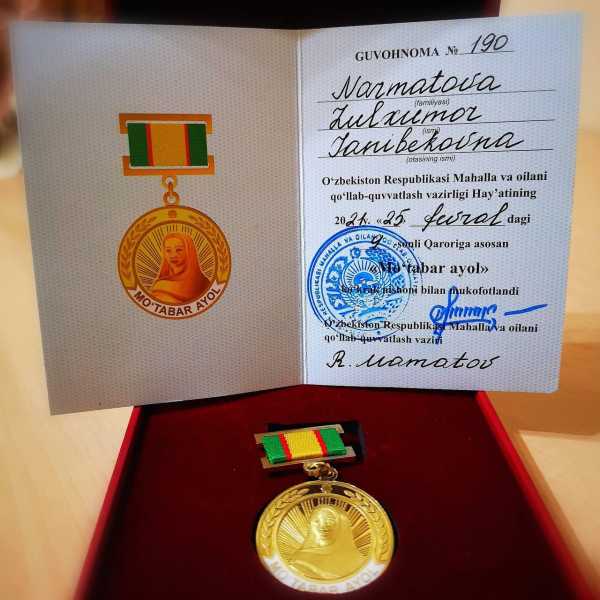 MO‘TABAR AYOL
GUVOHNOMA № 190
Narmatova
(familiyasi)
Zulxumor
(ismi)
Janibekovna
(otasining ismi)
O‘zbekiston Respublikasi Mahalla va oilani
qo‘llab-quvvatlash vazirligi Hay’atining
2021. «25» fevral dagi
9 -sonli Qaroriga asosan
«Mo‘tabar ayol»
ko‘krak nishoni bilan mukofotlandi
O‘zbekiston Respublikasi Mahalla va oilani
qo‘llab-quvvatlash vaziri
R. Mamatov
MO‘TABAR AYOL